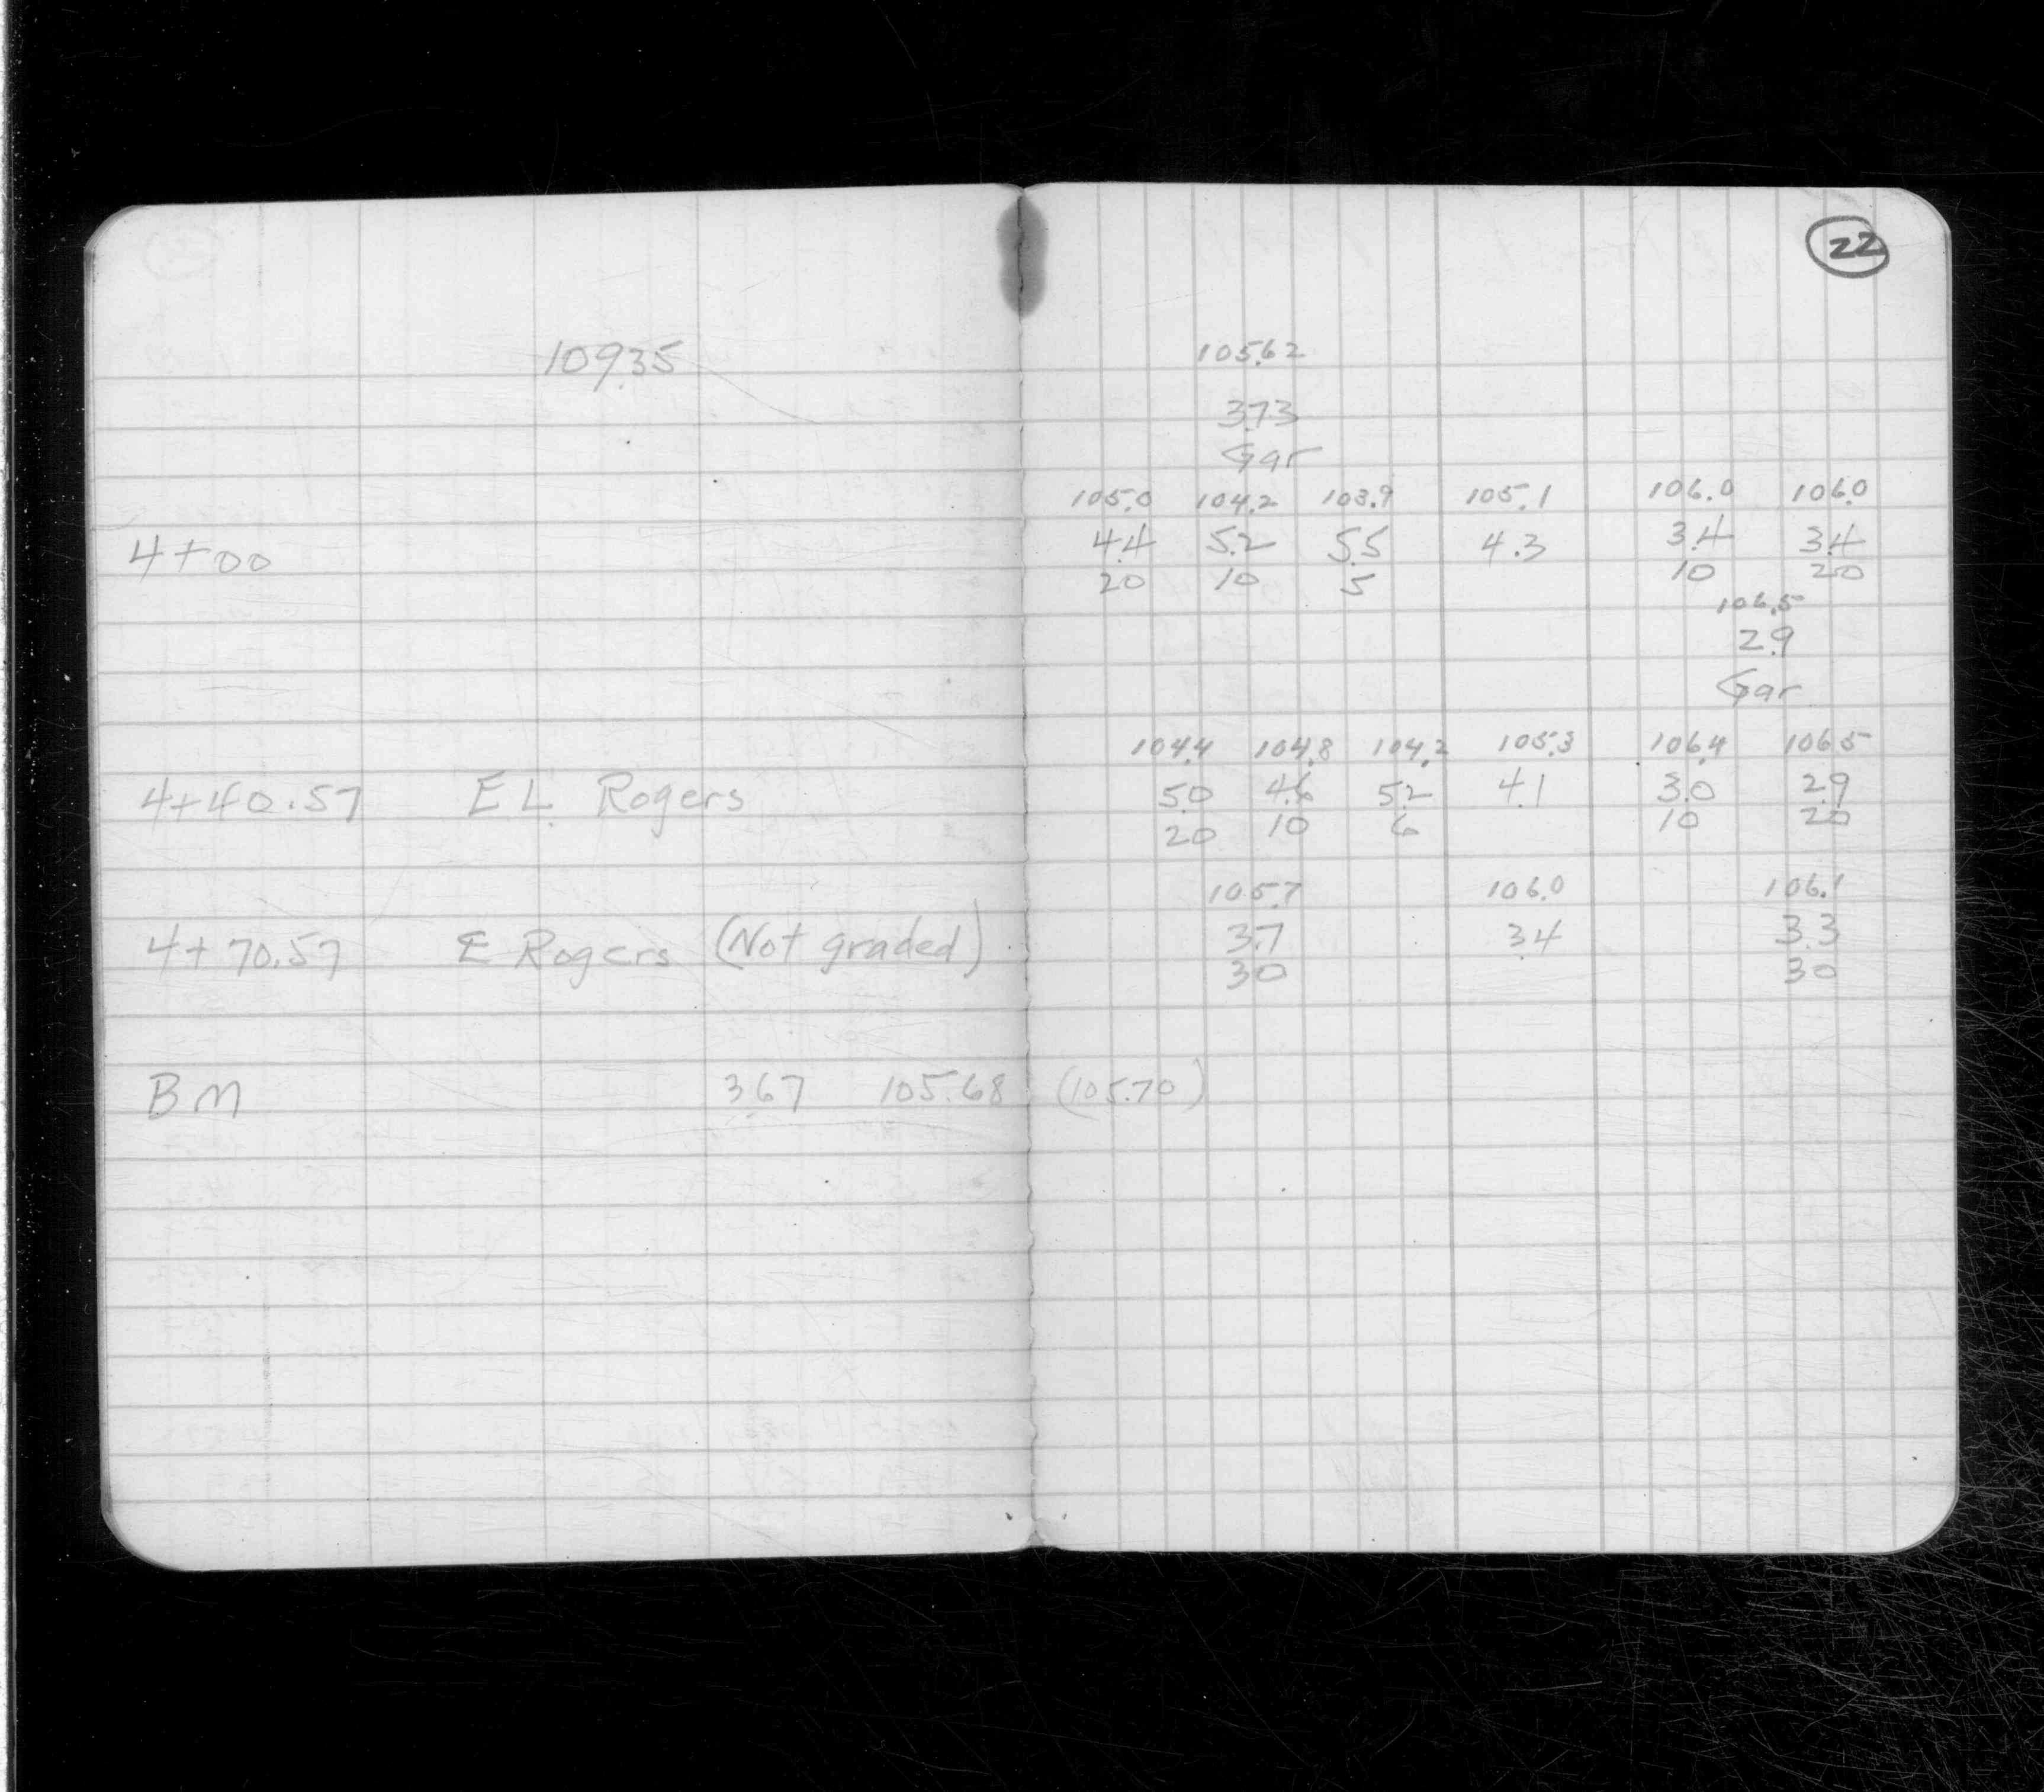 22
109.35 105.62
3.73
Gar
105.0 104.2 103.9 105.1 106.0 106.0
4+00 4.4 5.2 5.5 4.3 3.4 3.4
20 10 5 10 20
106.5
2.9
Gar
104.4 104.8 104.2 105.3 106.4 106.5
4+40.57 E L Rogers 5.0 4.6 5.2 4.1 3.0 2.9
20 10 6 10 20
105.7 106.0 106.1
4+70.57 E Rogers (Not graded) 3.7 3.4 3.3
30 30
BM 3.67 105.68 (105.70)